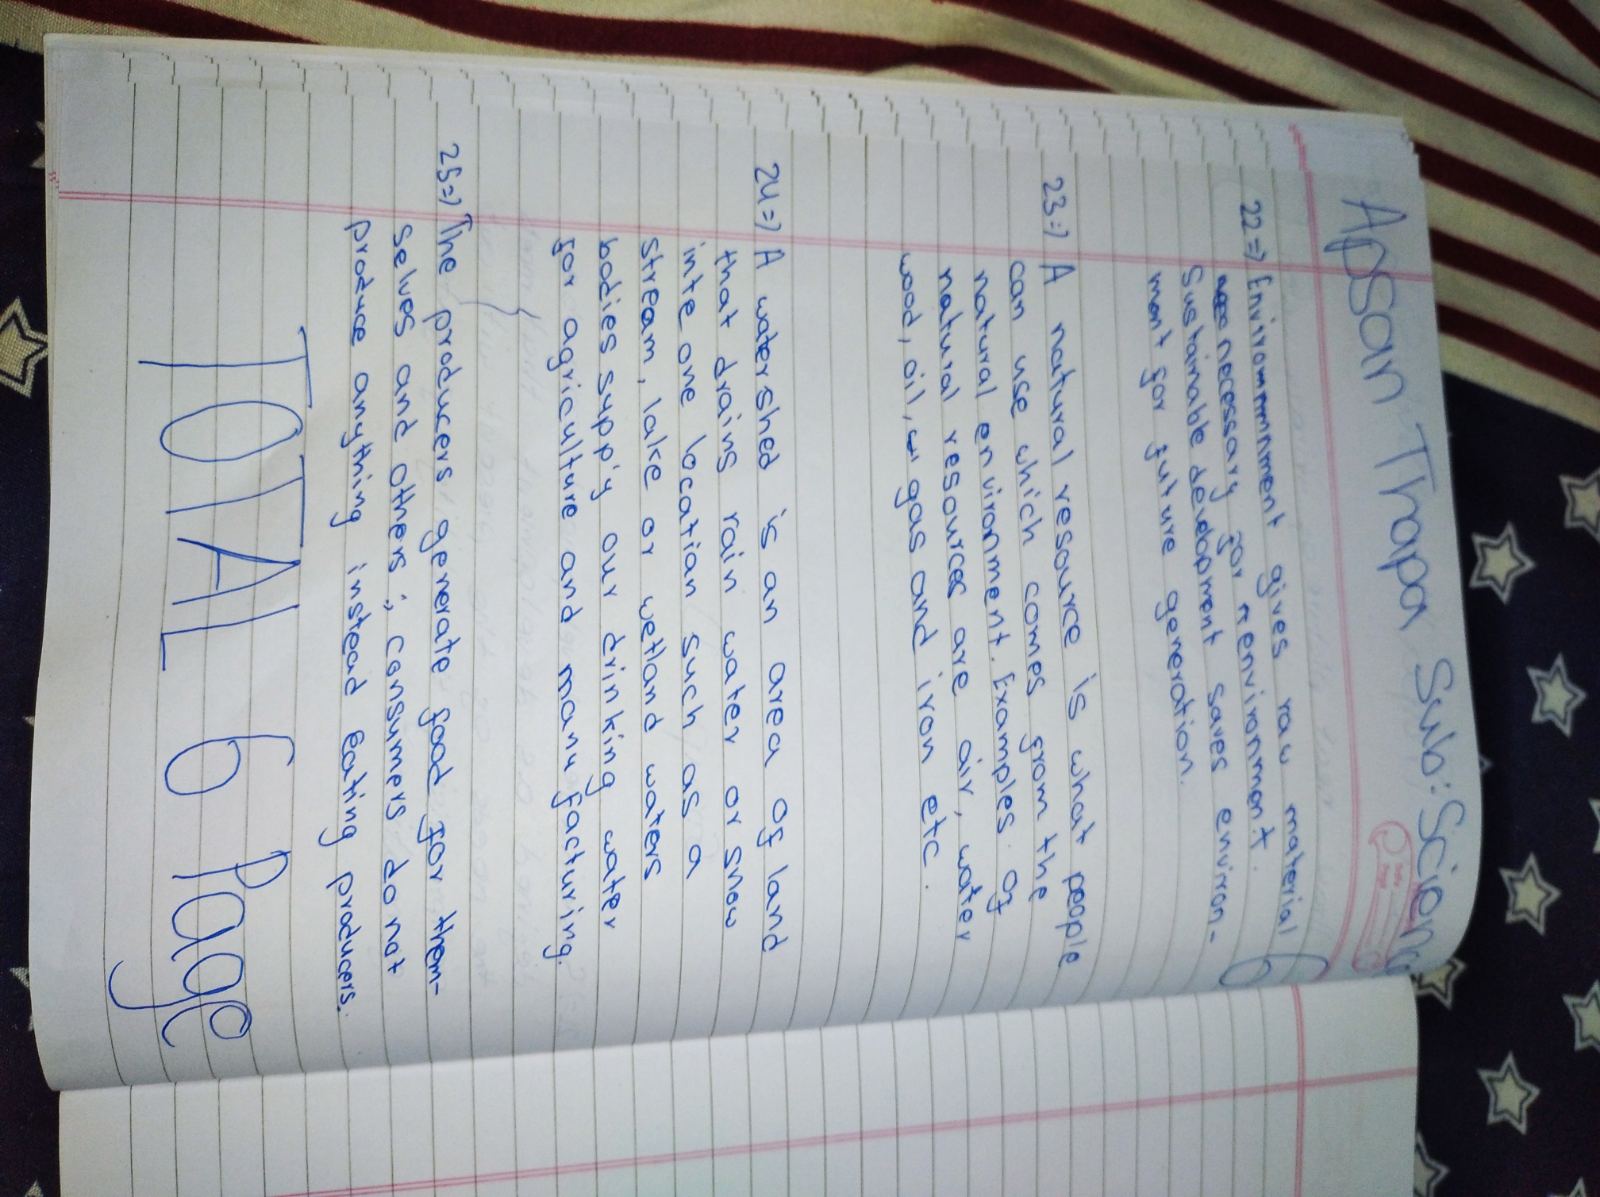 Apsan Thapa Sub: Science
6
22=) Enviromnment gives raw material
necessary for renvironment.
Sustainable development saves environ-
ment for future generation.
23=) A natural resource is what people
can use which comes from the
natural environment. Examples of
natural resources are air, water
wood, oil, gas and iron etc.
24=) A watershed is an area of land
that drains rain water or snow
into one location such as a
stream, lake or wetland waters
bodies supply our drinking water
for agriculture and manufacturing.
25=) The producers generate food for them-
selves and others; consumers do not
produce anything instead eating producers.
TOTAL 6 Page